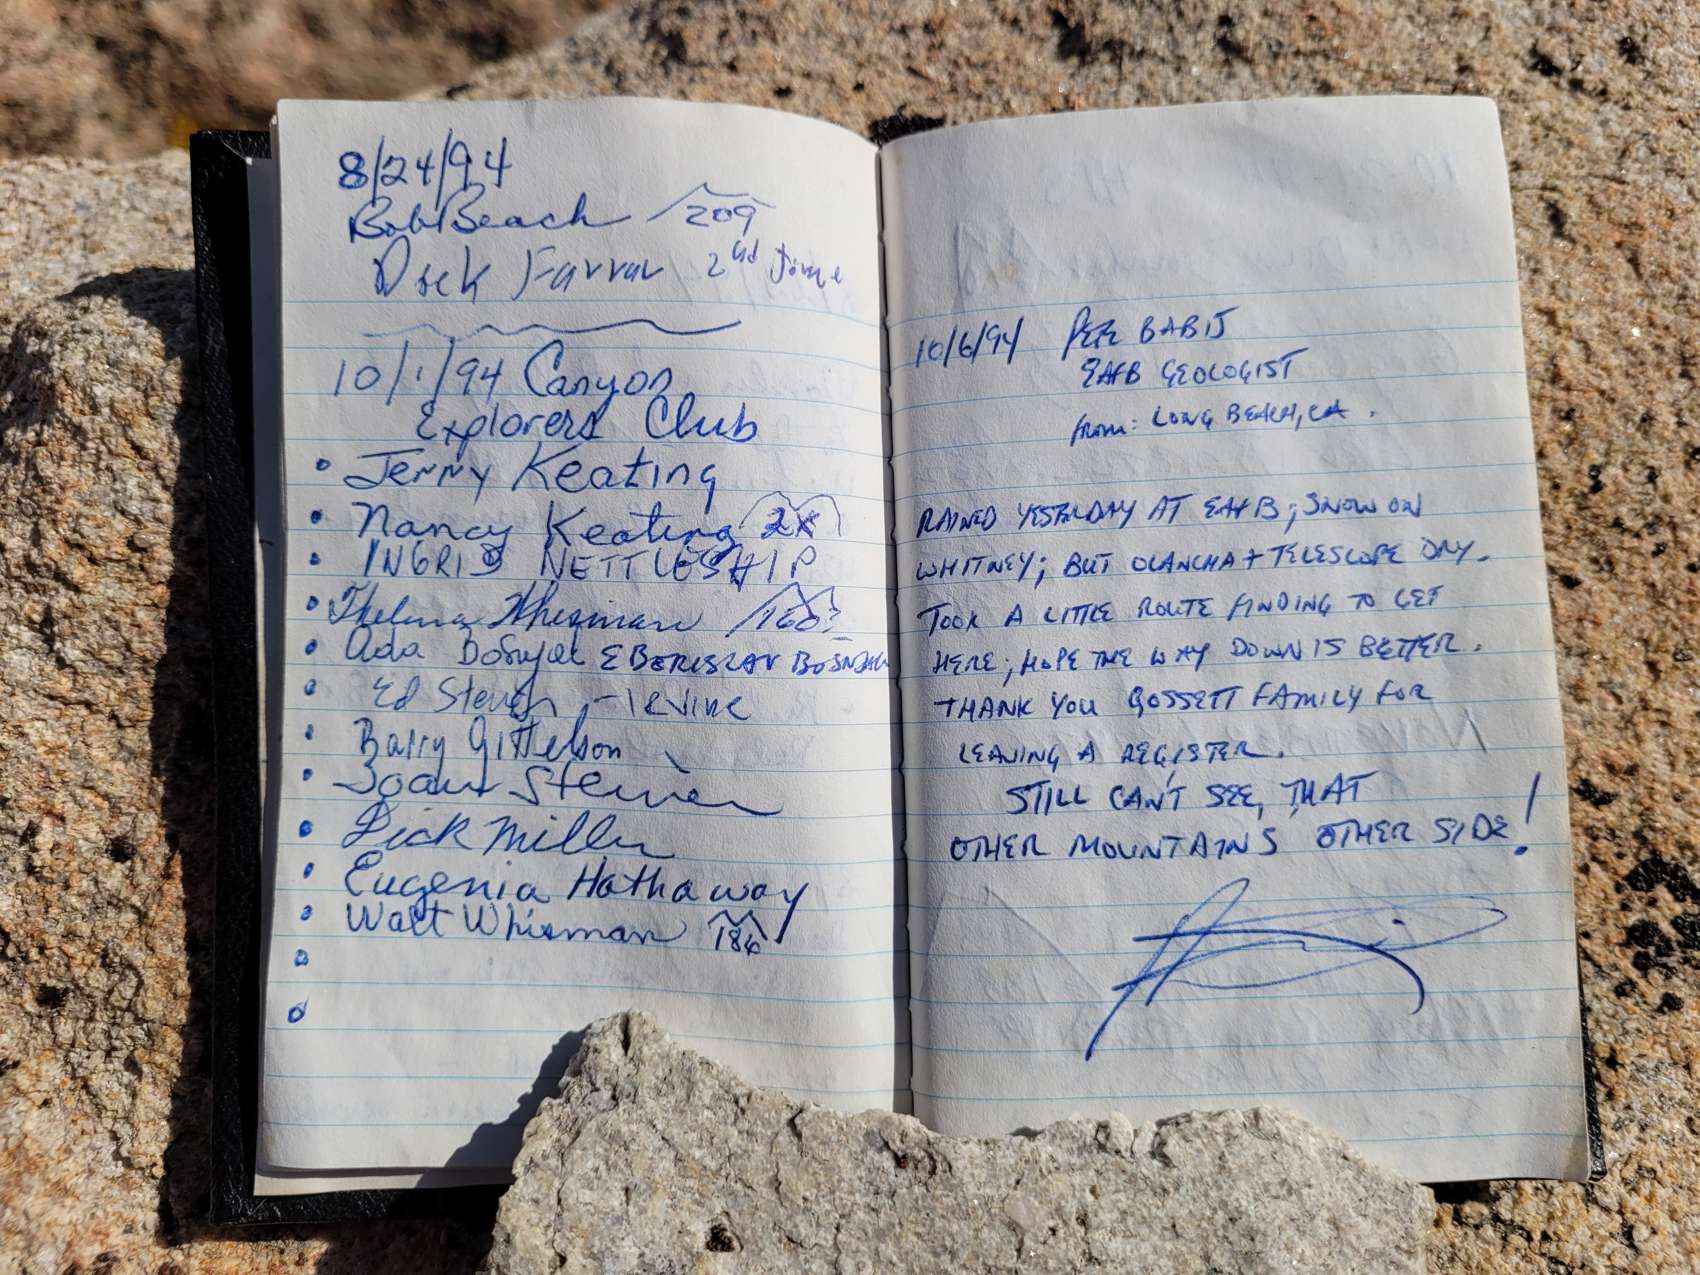 8/24/94
Bob Beach 209
Dick Farrar 2nd Time
10/1/94 Canyon
Explorers Club
Jerry Keating
Nancy Keating 2x
INGRID NETTLESHIP
Thelma Whisman 160
Ada & BORISLAV
Ed - IRVINE
Barry Gittelson
Joan
Dick Miller
Eugenia Hathaway
Walt Whisman 186
10/6/94 PETE BABIJ
EAFB GEOLOGIST
from: LONG BEACH, CA.
RAINED YESTERDAY AT EAFB; SNOW ON
WHITNEY; BUT OLANCHA + TELESCOPE DRY.
TOOK A LITTLE ROUTE FINDING TO GET
HERE; HOPE THE WAY DOWN IS BETTER.
THANK YOU GOSSETT FAMILY FOR
LEAVING A REGISTER.
STILL CAN'T SEE, THAT
OTHER MOUNTAINS OTHER SIDE!